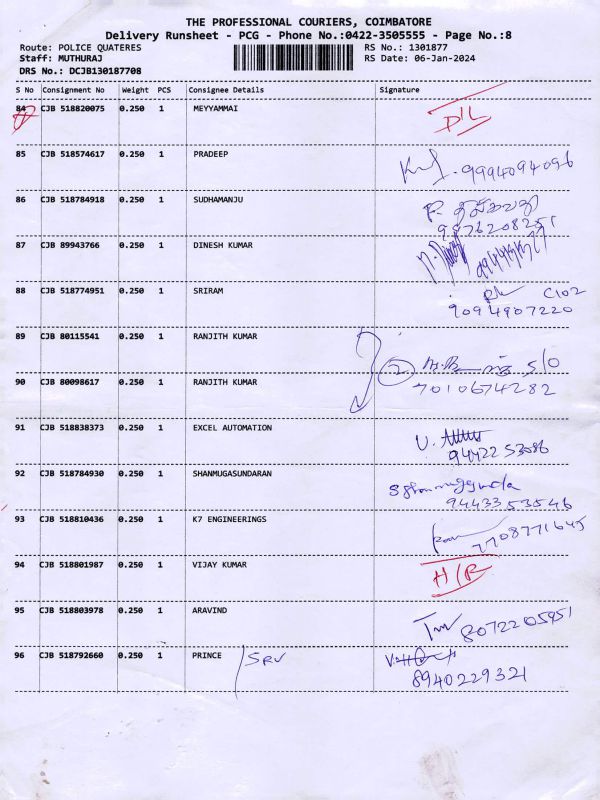 THE PROFESSIONAL COURIERS, COIMBATORE
Delivery Runsheet - PCG - Phone No.:0422-3505555 - Page No.:8
Route: POLICE QUATERES RS No.: 1301877
Staff: MUTHURAJ RS Date: 06-Jan-2024
DRS No.: DCJB130187708
S No Consignment No Weight PCS Consignee Details Signature
84 CJB 518820075 0.250 1 MEYYAMMAI D/L
85 CJB 518574617 0.250 1 PRADEEP 9994094096
86 CJB 518784918 0.250 1 SUDHAMANJU
9876208251
87 CJB 89943766 0.250 1 DINESH KUMAR
88 CJB 518774951 0.250 1 SRIRAM C102
9094907220
89 CJB 80115541 0.250 1 RANJITH KUMAR 2 S/O
90 CJB 80098617 0.250 1 RANJITH KUMAR 7010674282
91 CJB 518838373 0.250 1 EXCEL AUTOMATION
94422 53086
92 CJB 518784930 0.250 1 SHANMUGASUNDARAN
94433 53546
93 CJB 518810436 0.250 1 K7 ENGINEERINGS 7708771645
94 CJB 518801987 0.250 1 VIJAY KUMAR H/R
95 CJB 518803978 0.250 1 ARAVIND 8072205951
96 CJB 518792660 0.250 1 PRINCE / SRV
8940229321